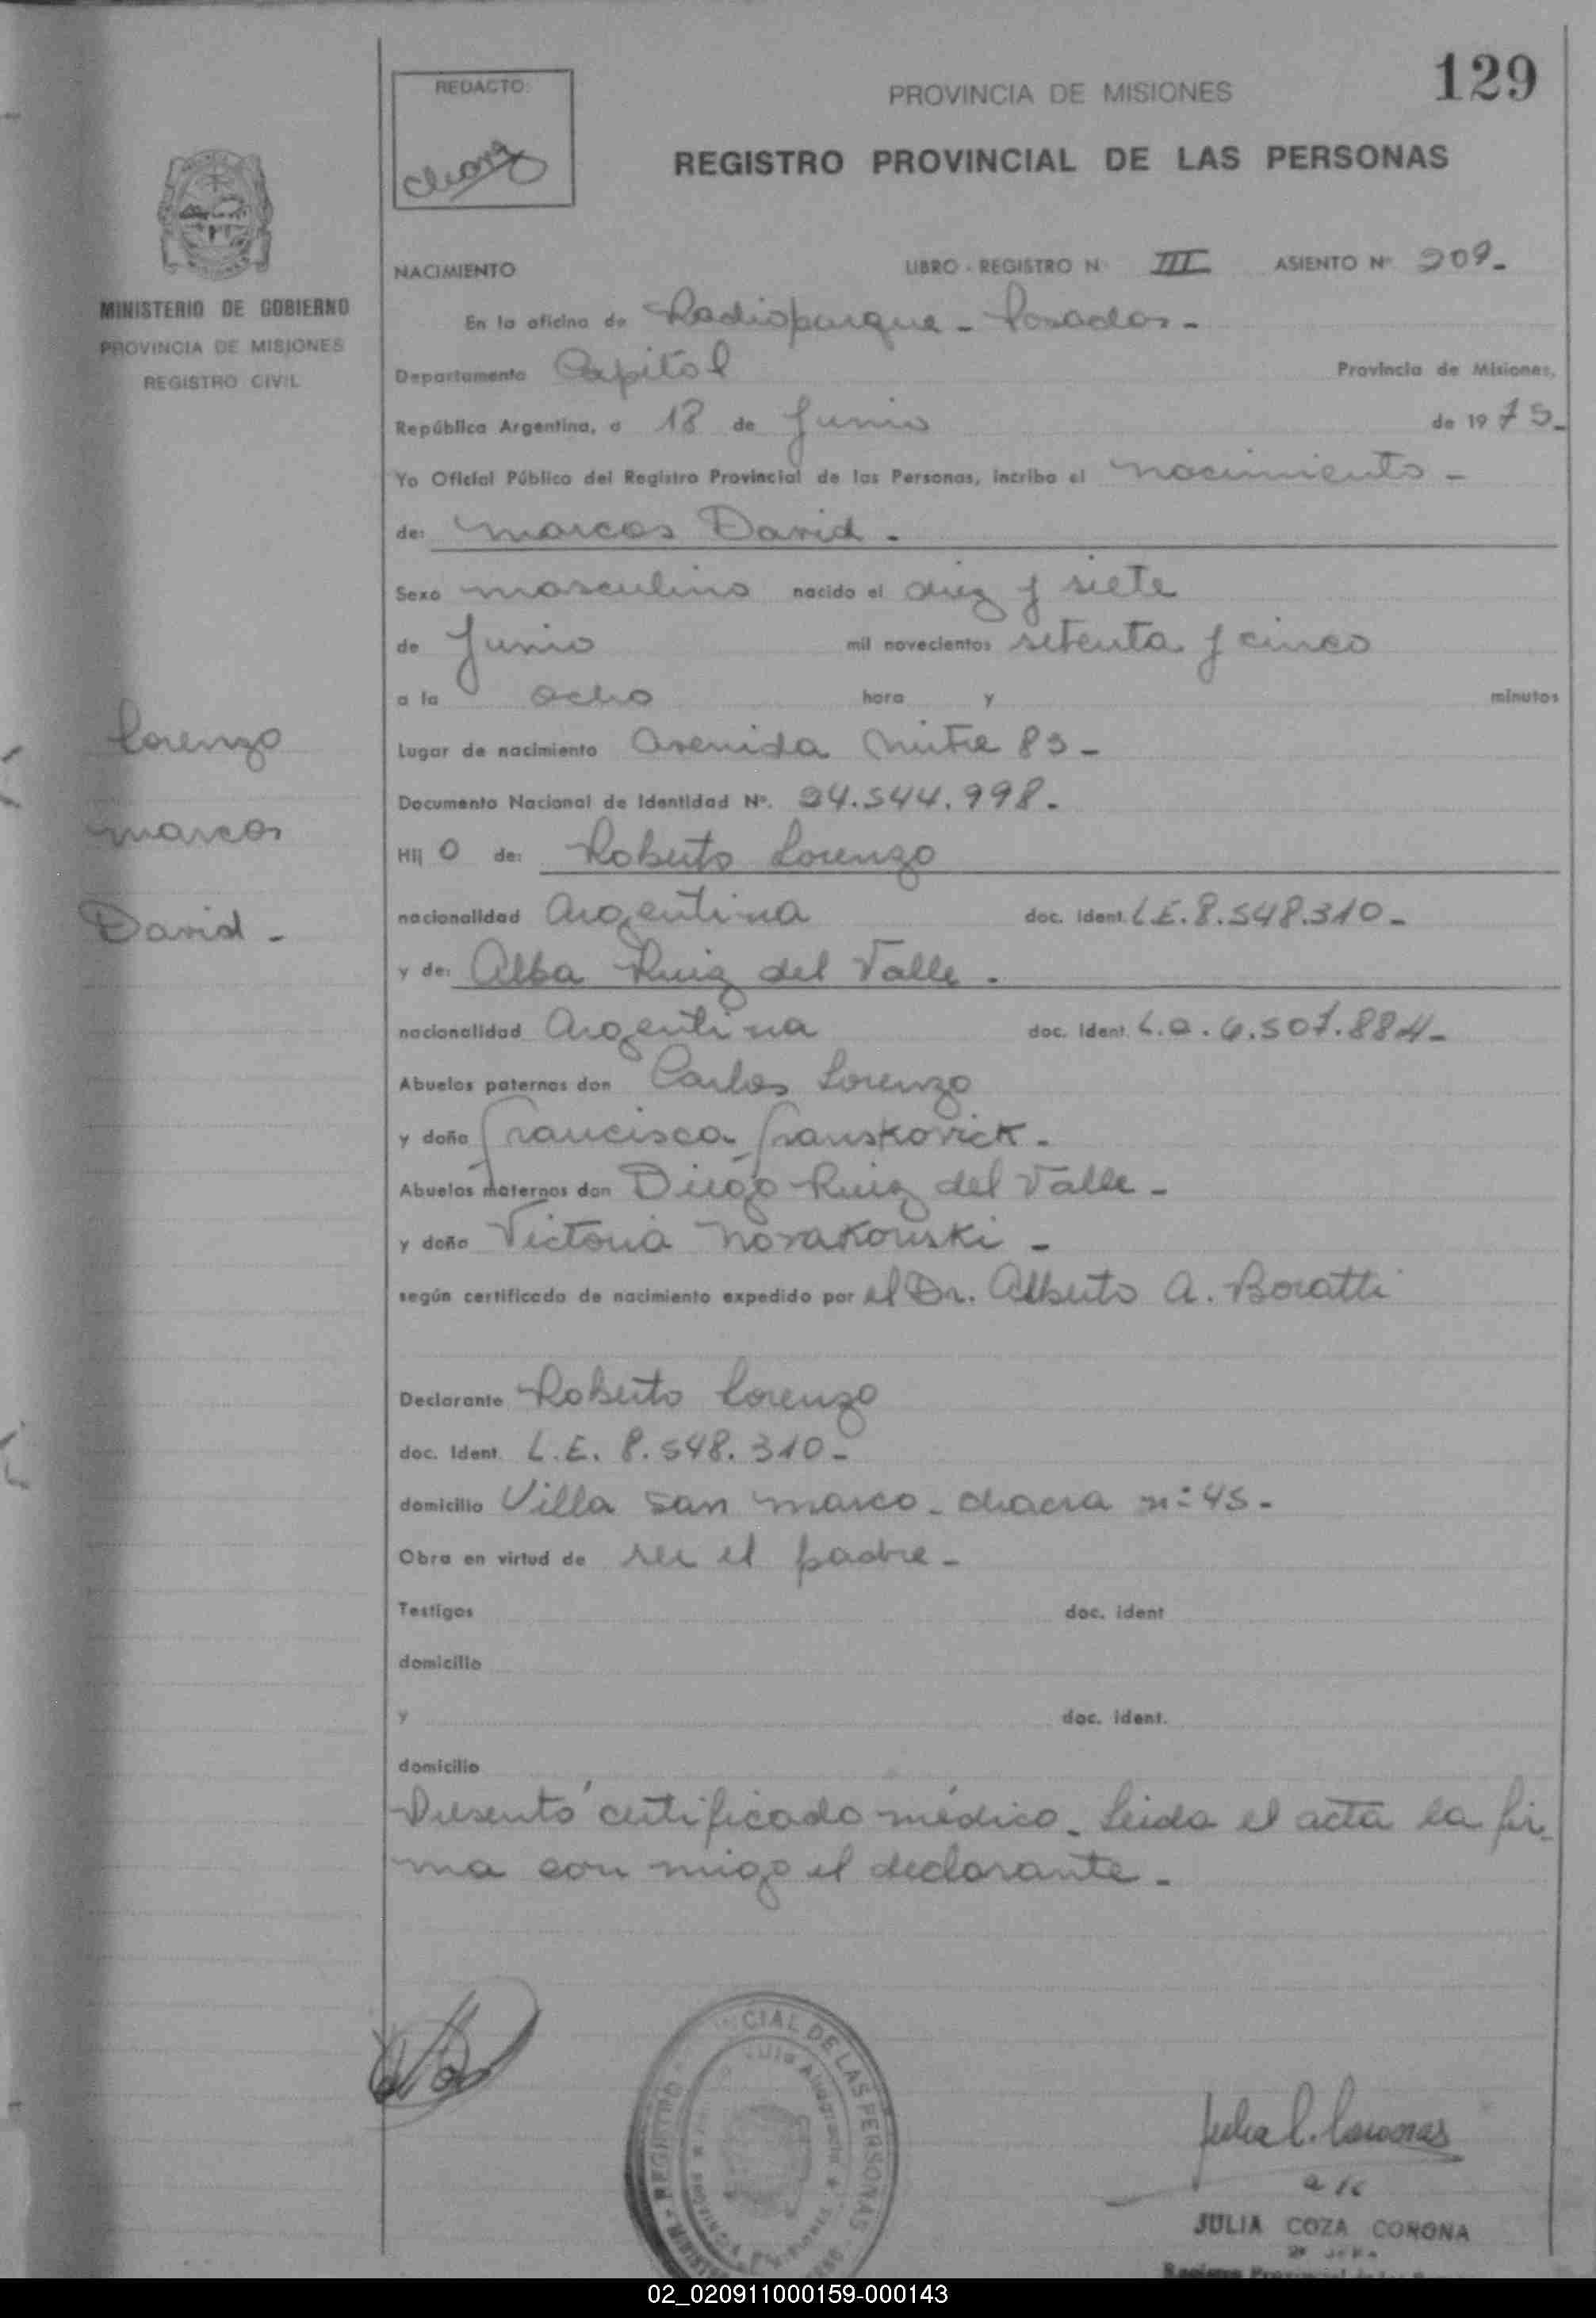 129
REDACTO:
PROVINCIA DE MISIONES
REGISTRO PROVINCIAL DE LAS PERSONAS
MINISTERIO DE GOBIERNO
PROVINCIA DE MISIONES
REGISTRO CIVIL
NACIMIENTO LIBRO - REGISTRO N. III ASIENTO Nº 209-
En la oficina de Radioparque - Posadas -
Departamento Capital Provincia de Misiones,
República Argentina, a 18 de Junio de 1975-
Yo Oficial Público del Registro Provincial de las Personas, incribo el nacimiento -
de: Marcos David -
Sexo masculino nacido el diez y siete
de Junio mil novecientos setenta y cinco
a la ocho hora y minutos
Lorenzo
Marcos
David -
Lugar de nacimiento Avenida Mitre 85 -
Documento Nacional de Identidad Nº. 24.544.998-
Hij o de: Roberto Lorenzo
nacionalidad Argentina doc. ident. L.E. 8.548.310-
y de: Alba Ruiz del Valle -
nacionalidad Argentina doc. ident. L.C. 6.507.884-
Abuelos paternos don Carlos Lorenzo
y doña Francisca Franskovick -
Abuelos maternos don Diego Ruiz del Valle -
y doña Victoria Novakouski -
según certificado de nacimiento expedido por el Dr. Alberto A. Boratti
Declarante Roberto Lorenzo
doc. Ident. L.E. 8.548.310-
domicilio Villa San Marco - chacra nº 45 -
Obra en virtud de ser el padre -
Testigos doc. ident
domicilio
y doc. ident.
domicilio
Presentó certificado médico - Leida el acta la fir-
ma con migo el declarante -
CIAL DE LAS PERSONAS
REGISTRO
Julia C. Corona
a/c
JULIA COZA CORONA
02_020911000159-000143